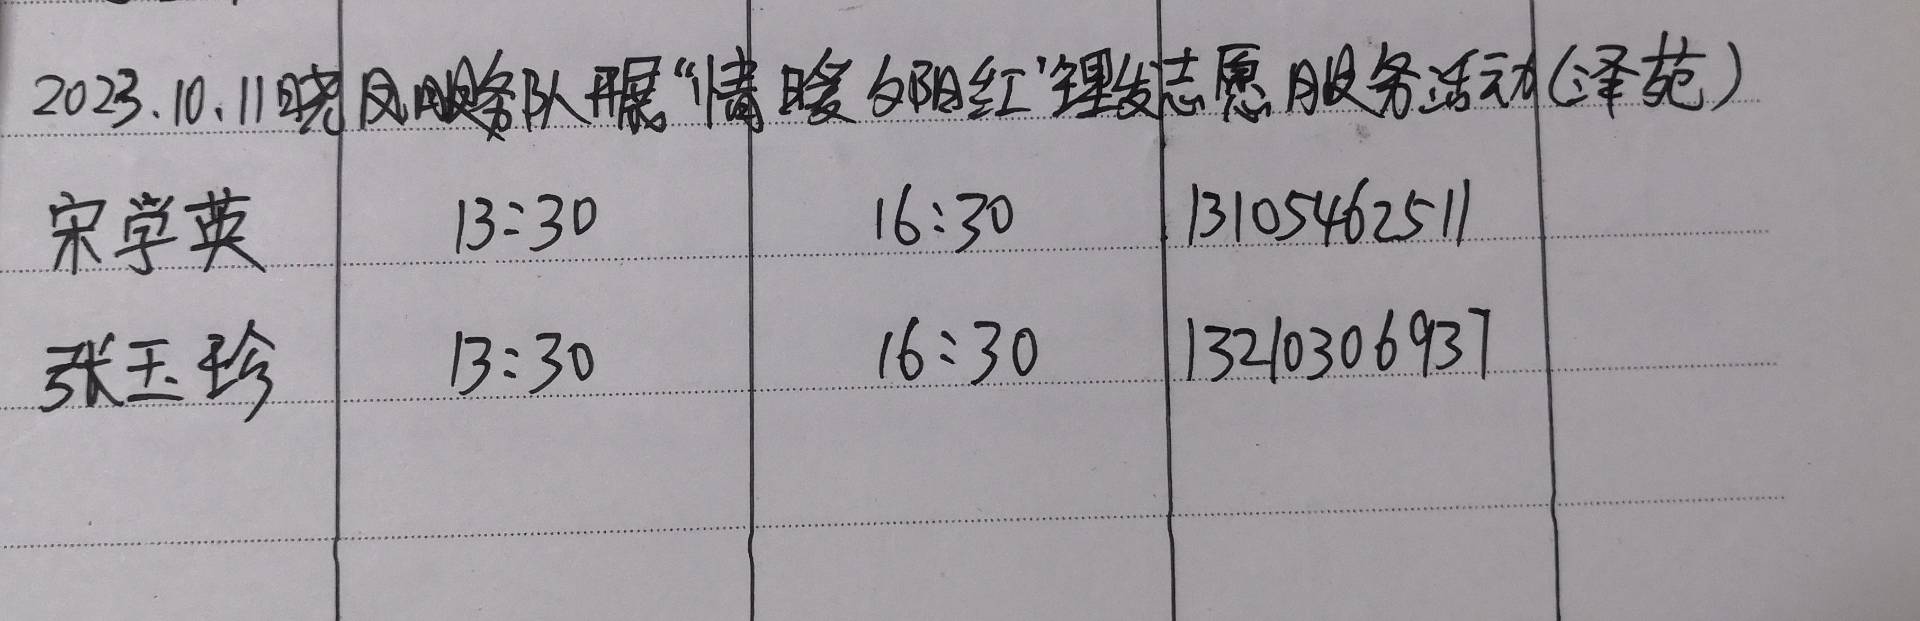 2023.10.11晓风服务队开展“情暖夕阳红”理发志愿服务活动(泽苑)
宋学英 13:30 16:30 13105462511
张玉珍 13:30 16:30 13210306937